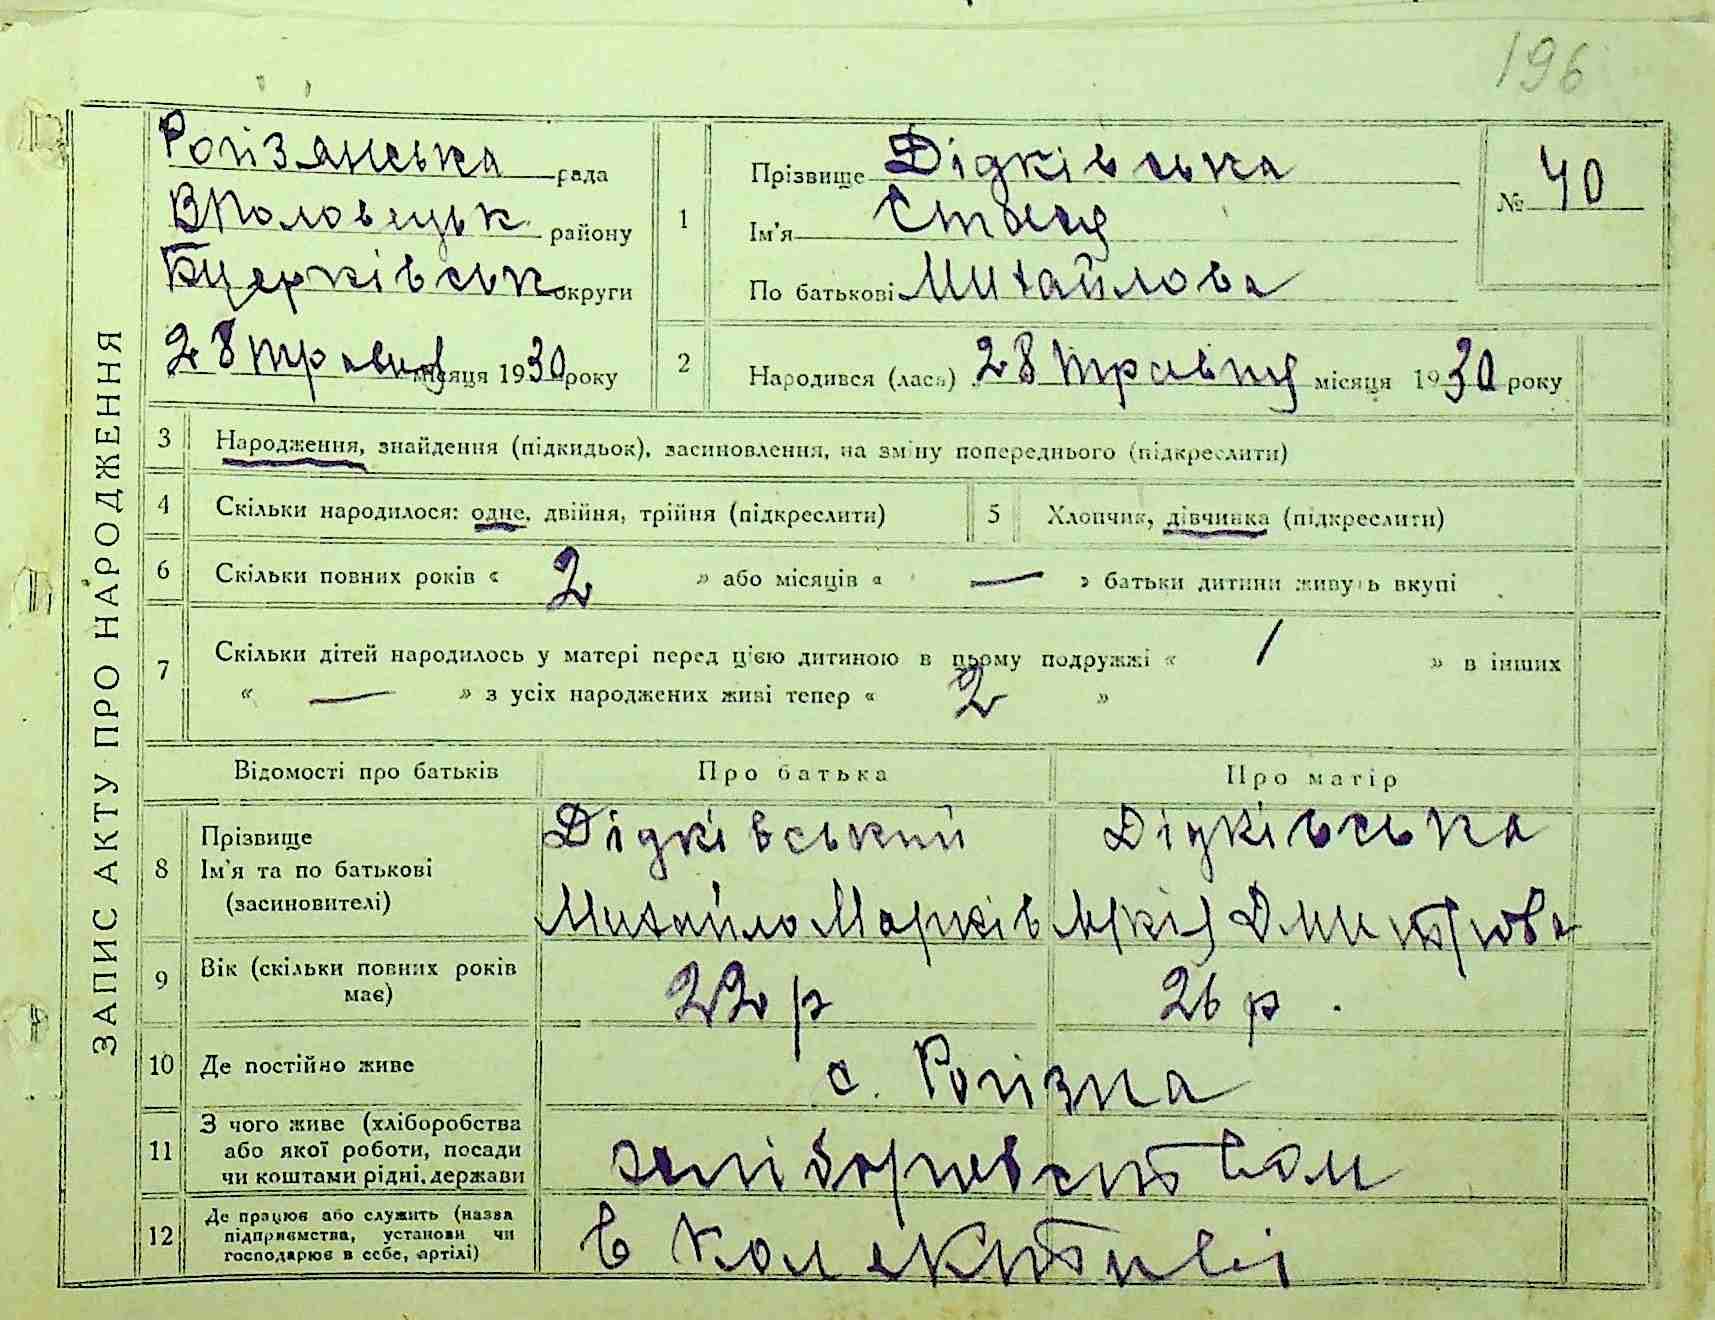 196
ЗАПИС АКТУ ПРО НАРОДЖЕННЯ
Рогізянська рада
ВПоловецьк району
Бцерківськ округи
28 травня місяця 1930 року
1 Прізвище Дідківська
Ім'я Стася
По батькові Михайлова
№ 40
2 Народився (лася) 28 травня місяця 1930 року
3 Народження, знайдення (підкидьок), засиновлення, на зміну попереднього (підкреслити)
4 Скільки народилося: одне, двійня, трійня (підкреслити)
5 Хлопчик, дівчинка (підкреслити)
6 Скільки повних років « 2 » або місяців « — » батьки дитини живуть вкупі
7 Скільки дітей народилось у матері перед цією дитиною в цьому подружжі « 1 » в інших
« — » з усіх народжених живі тепер « 2 »
Відомості про батьків Про батька Про матір
8 Прізвище
Ім'я та по батькові
(засиновителі)
Дідківський
Михайло Марків
Дідківська
Дмитрова
9 Вік (скільки повних років
має)
22 р
26 р.
10 Де постійно живе
с. Рогізна
11 З чого живе (хліборобства
або якої роботи, посади
чи коштами рідні, держави
12 Де працює або служить (назва
підприємства, установи чи
господарює в себе, артілі)
в колективі